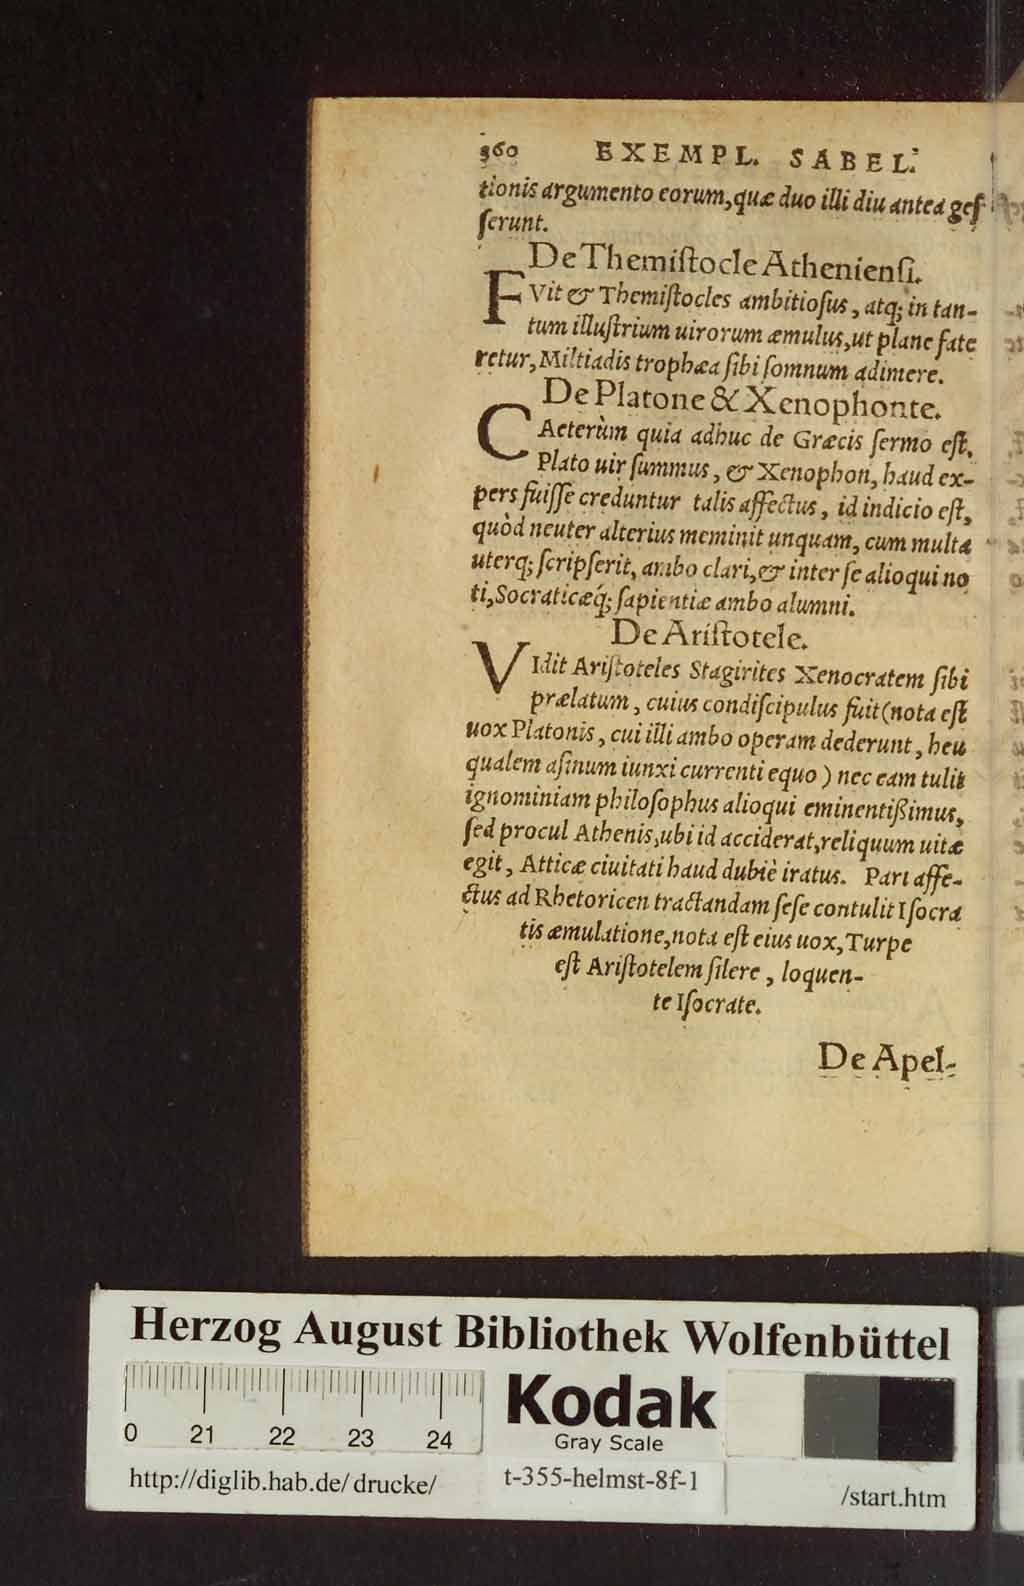 360 EXEMPL. SABEL.
tionis argumento eorum, quæ duo illi diu antea geſ-
ſerunt.
De Themiſtocle Athenienſi.
FVit & Themiſtocles ambitioſus, atq; in tan-
tum illuſtrium uirorum æmulus, ut plane fate
retur, Miltiadis trophæa ſibi ſomnum adimere.
De Platone & Xenophonte.
CAeterùm quia adhuc de Græcis ſermo eſt,
Plato uir ſummus, & Xenophon, haud ex-
pers fuiſſe creduntur talis affectus, id indicio eſt,
quòd neuter alterius meminit unquam, cum multa
uterq; ſcripſerit, ambo clari, & inter ſe alioqui no
ti, Socraticæq́; ſapientiæ ambo alumni.
De Ariſtotele.
VIdit Ariſtoteles Stagirites Xenocratem ſibi
prælatum, cuius condiſcipulus fuit (nota eſt
uox Platonis, cui illi ambo operam dederunt, heu
qualem aſinum iunxi currenti equo) nec eam tulit
ignominiam philoſophus alioqui eminentißimus,
ſed procul Athenis, ubi id acciderat, reliquum uitæ
egit, Atticæ ciuitati haud dubiè iratus. Pari affe-
ctus ad Rhetoricen tractandam ſeſe contulit Iſocra
tis æmulatione, nota eſt eius uox, Turpe
eſt Ariſtotelem ſilere, loquen-
te Iſocrate.
De Apel-
Herzog August Bibliothek Wolfenbüttel
0 21 22 23 24
Kodak
Gray Scale
http://diglib.hab.de/drucke/ t-355-helmst-8f-1 /start.htm